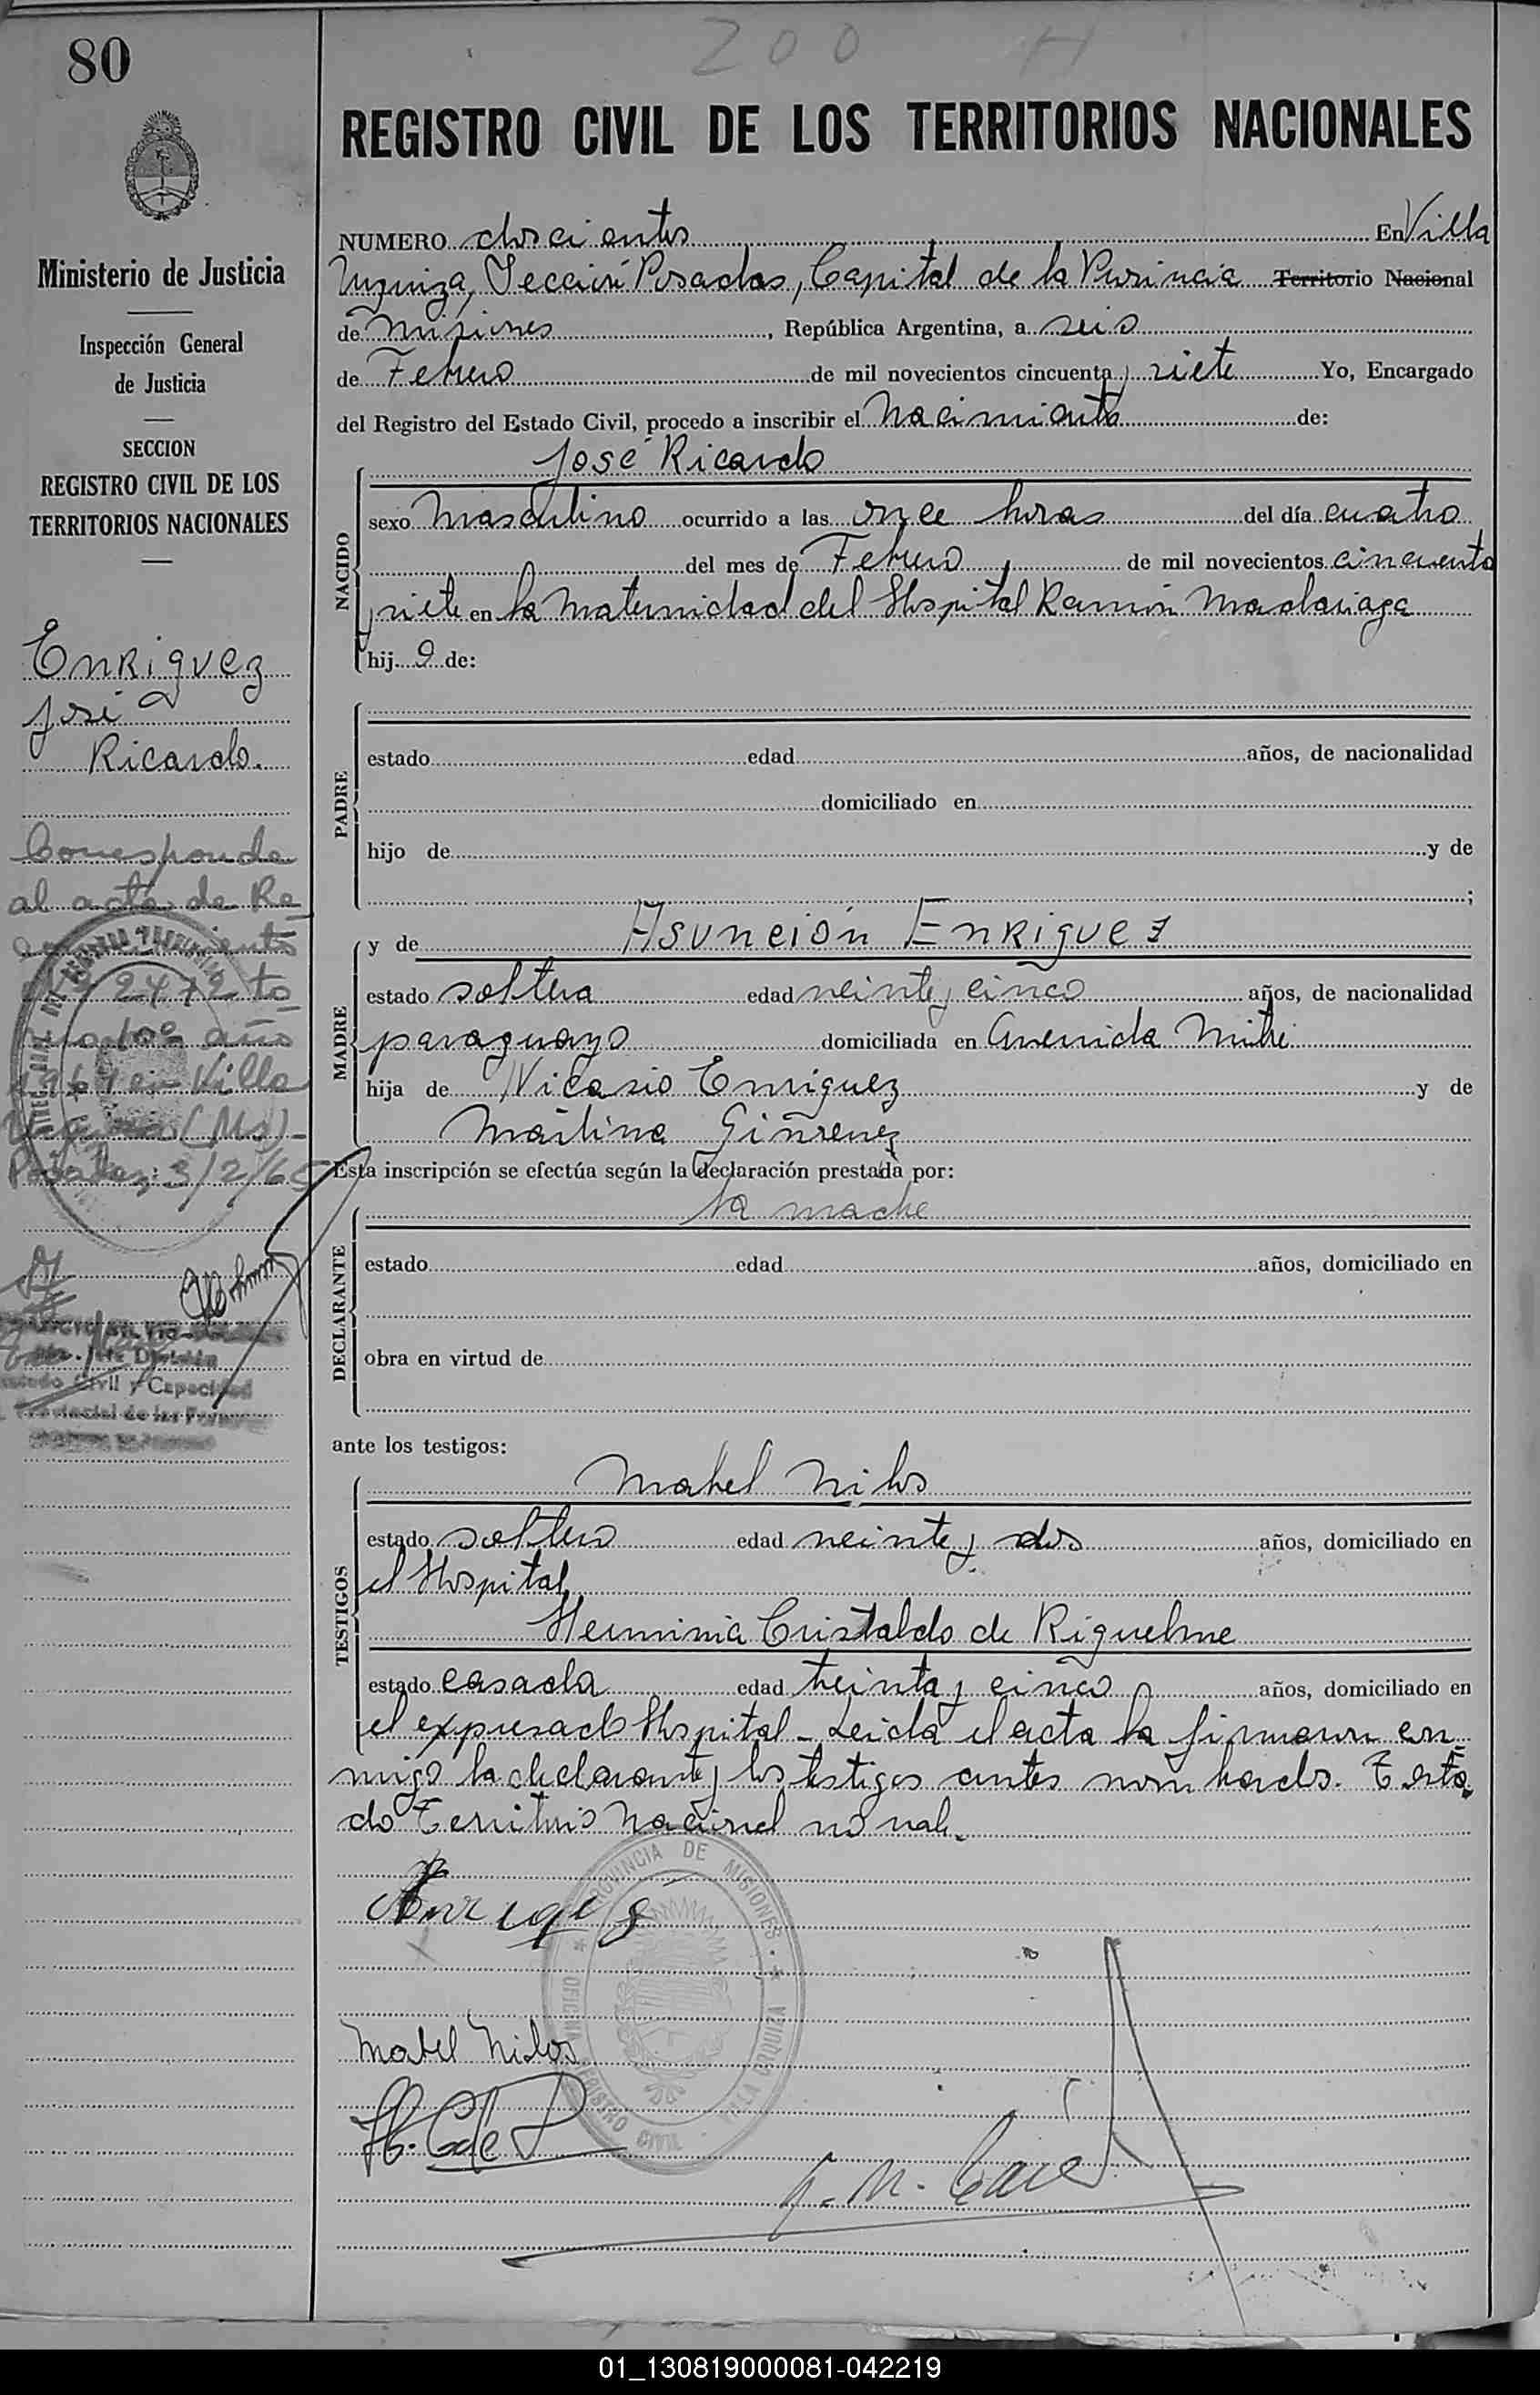 80
200 H
REGISTRO CIVIL DE LOS TERRITORIOS NACIONALES
Ministerio de Justicia
Inspección General
de Justicia
SECCION
REGISTRO CIVIL DE LOS
TERRITORIOS NACIONALES
Enriquez
José
Ricardo.
Corresponde
al acta de Re
2472 to
año
en Villa
(Ms)-
Posadas: 3/2/65
División
Civil y Capacidad
Provincial de las Personas
NUMERO doscientos En Villa
Urquiza, Sección Posadas, Capital de la Provincia Territorio Nacional
de Misiones, República Argentina, a seis
de Febrero de mil novecientos cincuenta y siete Yo, Encargado
del Registro del Estado Civil, procedo a inscribir el Nacimiento de:
NACIDO
José Ricardo
sexo Masculino ocurrido a las once horas del día cuatro
del mes de Febrero de mil novecientos cincuenta
y siete en la Maternidad del Hospital Ramón Madariaga
hijo de:
PADRE
estado edad años, de nacionalidad
domiciliado en
hijo de y de
;
MADRE
y de Asunción Enriquez
estado soltera edad veinte y cinco años, de nacionalidad
paraguaya domiciliada en Avenida Mitre
hija de Nicasio Enriquez y de
Martina Gimenez
Esta inscripción se efectúa según la declaración prestada por:
DECLARANTE
la madre
estado edad años, domiciliado en
obra en virtud de
ante los testigos:
TESTIGOS
Mabel Nilos
estado soltera edad veinte y dos años, domiciliado en
el Hospital
Herminia Cristaldo de Riquelme
estado casada edad treinta y cinco años, domiciliado en
el expresado Hospital - Leida el acta la firmaron con-
migo la declarante y los testigos antes nombrados. Testa-
do Territorio Nacional no vale.
PROVINCIA DE MISIONES
VILLA URQUIZA
OFICINA REGISTRO CIVIL
Mabel Nilos
H. C de R
01_130819000081-042219